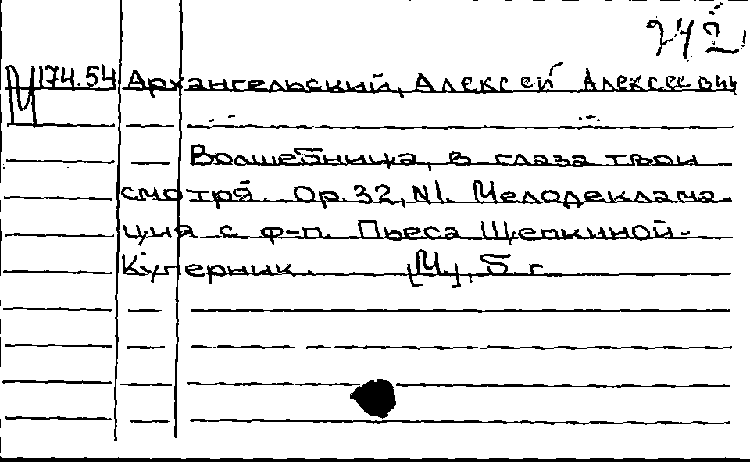 242
М174.54 Архангельский, Алексей Алексеевич
Волшебница, в глаза твои
смотря. Op. 32, N1. Мелодеклама-
ция с ф-п. Пьеса Щепкиной-
Куперник. [М], Б г.